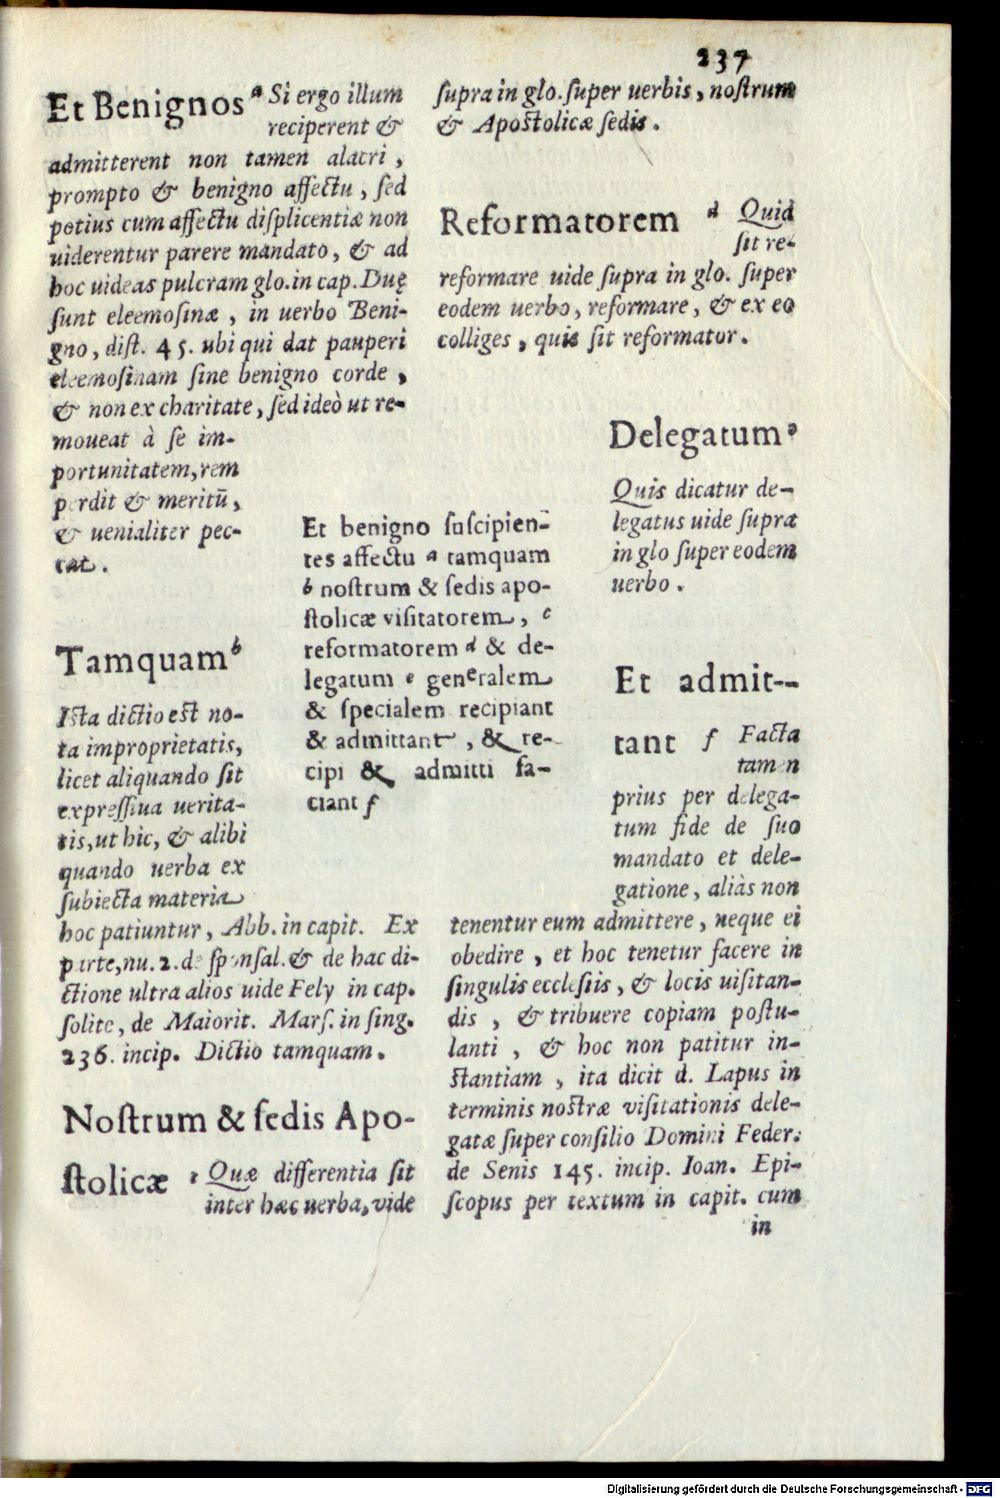 237
Et Benignos a Si ergo illum
reciperent &
admitterent non tamen alacri,
prompto & benigno affectu, sed
potius cum affectu displicentiæ non
uiderentur parere mandato, & ad
hoc uideas pulcram glo. in cap. Duę
sunt eleemosinæ, in uerbo Beni-
gno, dist. 45. ubi qui dat pauperi
eleemosinam sine benigno corde,
& non ex charitate, sed ideò ut re-
moueat à se im-
portunitatem, rem
perdit & meritū,
& uenialiter pec-
cat.
Tamquam b
Ista dictio est no-
ta improprietatis,
licet aliquando sit
expressiua uerita-
tis, ut hic, & alibi
quando uerba ex
subiecta materia
hoc patiuntur, Abb. in capit. Ex
parte, nu. 2. de sponsal. & de hac di-
ctione ultra alios uide Fely in cap.
solite, de Maiorit. Mars. in sing.
236. incip. Dictio tamquam.
Nostrum & sedis Apo-
stolicæ c Quæ differentia sit
inter hæc uerba, vide
Et benigno suscipien-
tes affectu a tamquam
b nostrum & sedis apo-
stolicæ visitatorem, c
reformatorem d & de-
legatum e generalem
& specialem recipiant
& admittant, & re-
cipi & admitti fa-
ciant f
supra in glo. super uerbis, nostrum
& Apostolicæ sedis.
Reformatorem d Quid
sit re-
reformare uide supra in glo. super
eodem uerbo, reformare, & ex eo
colliges, quis sit reformator.
Delegatum e
Quis dicatur de-
legatus uide supra
in glo super eodem
uerbo.
Et admit-
tant f Facta
tamen
prius per delega-
tum fide de suo
mandato et dele-
gatione, aliàs non
tenentur eum admittere, neque ei
obedire, et hoc tenetur facere in
singulis ecclesiis, & locis uisitan-
dis, & tribuere copiam postu-
lanti, & hoc non patitur in-
stantiam, ita dicit d. Lapus in
terminis nostræ visitationis dele-
gatæ super consilio Domini Feder.
de Senis 145. incip. Ioan. Epi-
scopus per textum in capit. cum
in
Digitalisierung gefördert durch die Deutsche Forschungsgemeinschaft - DFG